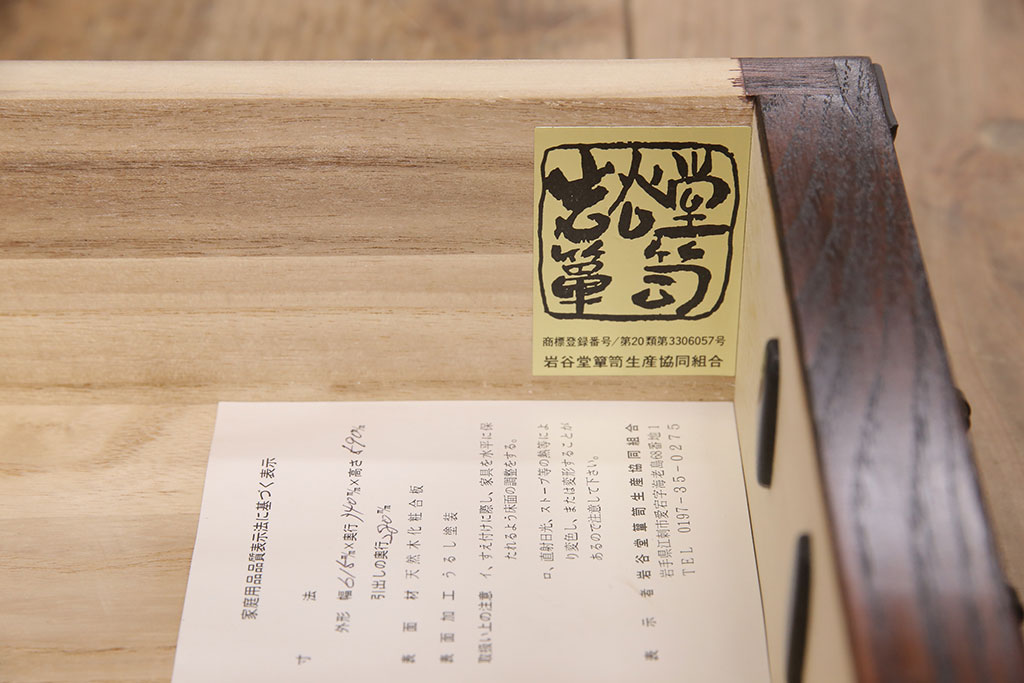 岩谷堂
簞笥
商標登録番号/第20類第3306057号
岩谷堂簞笥生産協同組合
家庭用品品質表示法に基づく表示
寸法
外形 幅615㎜×奥行340㎜×高さ690㎜
引出しの奥行280㎜
表面材 天然木化粧合板
表面加工 うるし塗装
取扱い上の注意 イ、すえ付けに際し、家具を水平に保
たれるよう床面の調整をする。
ロ、直射日光、ストーブ等の熱等によ
り変色し、または変形することが
あるので注意して下さい。
表示者 岩谷堂簞笥生産協同組合
岩手県江刺市愛宕字海老島68番地1
TEL 0197-35-0275